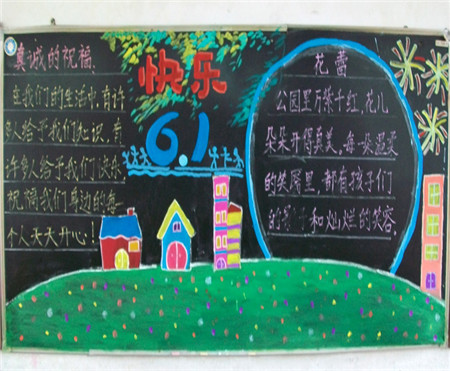 真诚的祝福
在我们的生活中,有许
多人给予我们知识,有
许多人给予我们快乐
祝福我们身边的每
个人天天开心!
快乐
6.1
花蕾
公园里万紫千红,花儿
朵朵开得真美,每一朵
的笑靥里,都有孩子们
的 和灿烂的笑容.